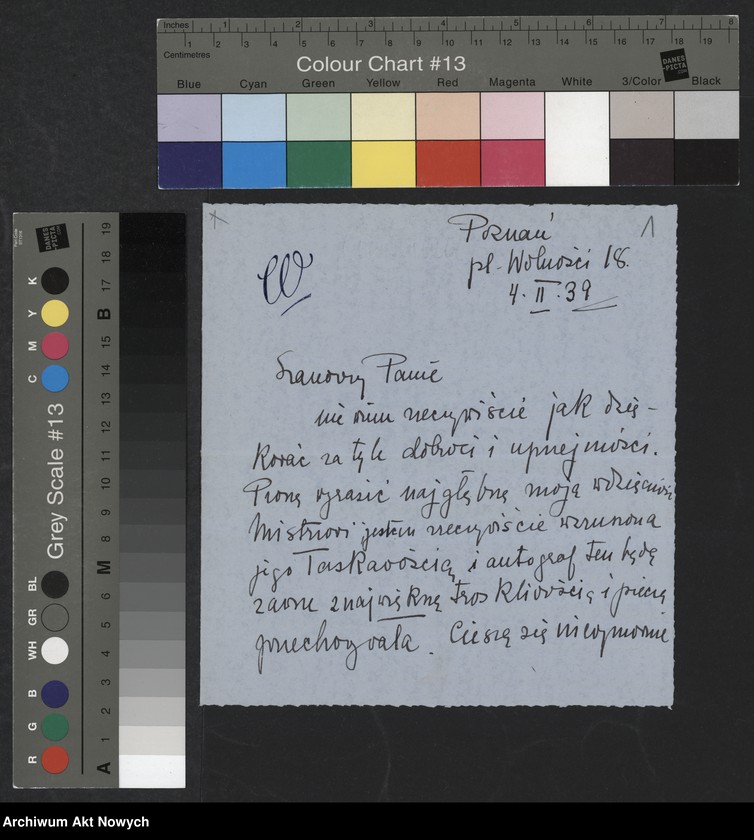 Inches 1 2 3 4 5 6 7 8
Centimetres 1 2 3 4 5 6 7 8 9 10 11 12 13 14 15 16 17 18 19
Colour Chart #13
DANES-PICTA.COM
Blue Cyan Green Yellow Red Magenta White 3/Color Black
Grey Scale #13
DANES-PICTA.COM
R G B WH GR BL C M Y K
A 1 2 3 4 5 6 M 8 9 10 11 12 13 14 15 B 17 18 19
1
Poznań
pl. Wolności 18.
4. II. 39
W
Szanowny Panie
nie wiem rzeczywiście jak dzię-
kować za tyle dobroci i uprzejmości.
Proszę wyrazić najgłębszą moją wdzięczność
Mistrzowi jestem rzeczywiście wzruszona
jego łaskawością i autograf ten będę
zawsze z największą troskliwością i pieczą
przechowywała. Cieszę się niewymownie
Archiwum Akt Nowych